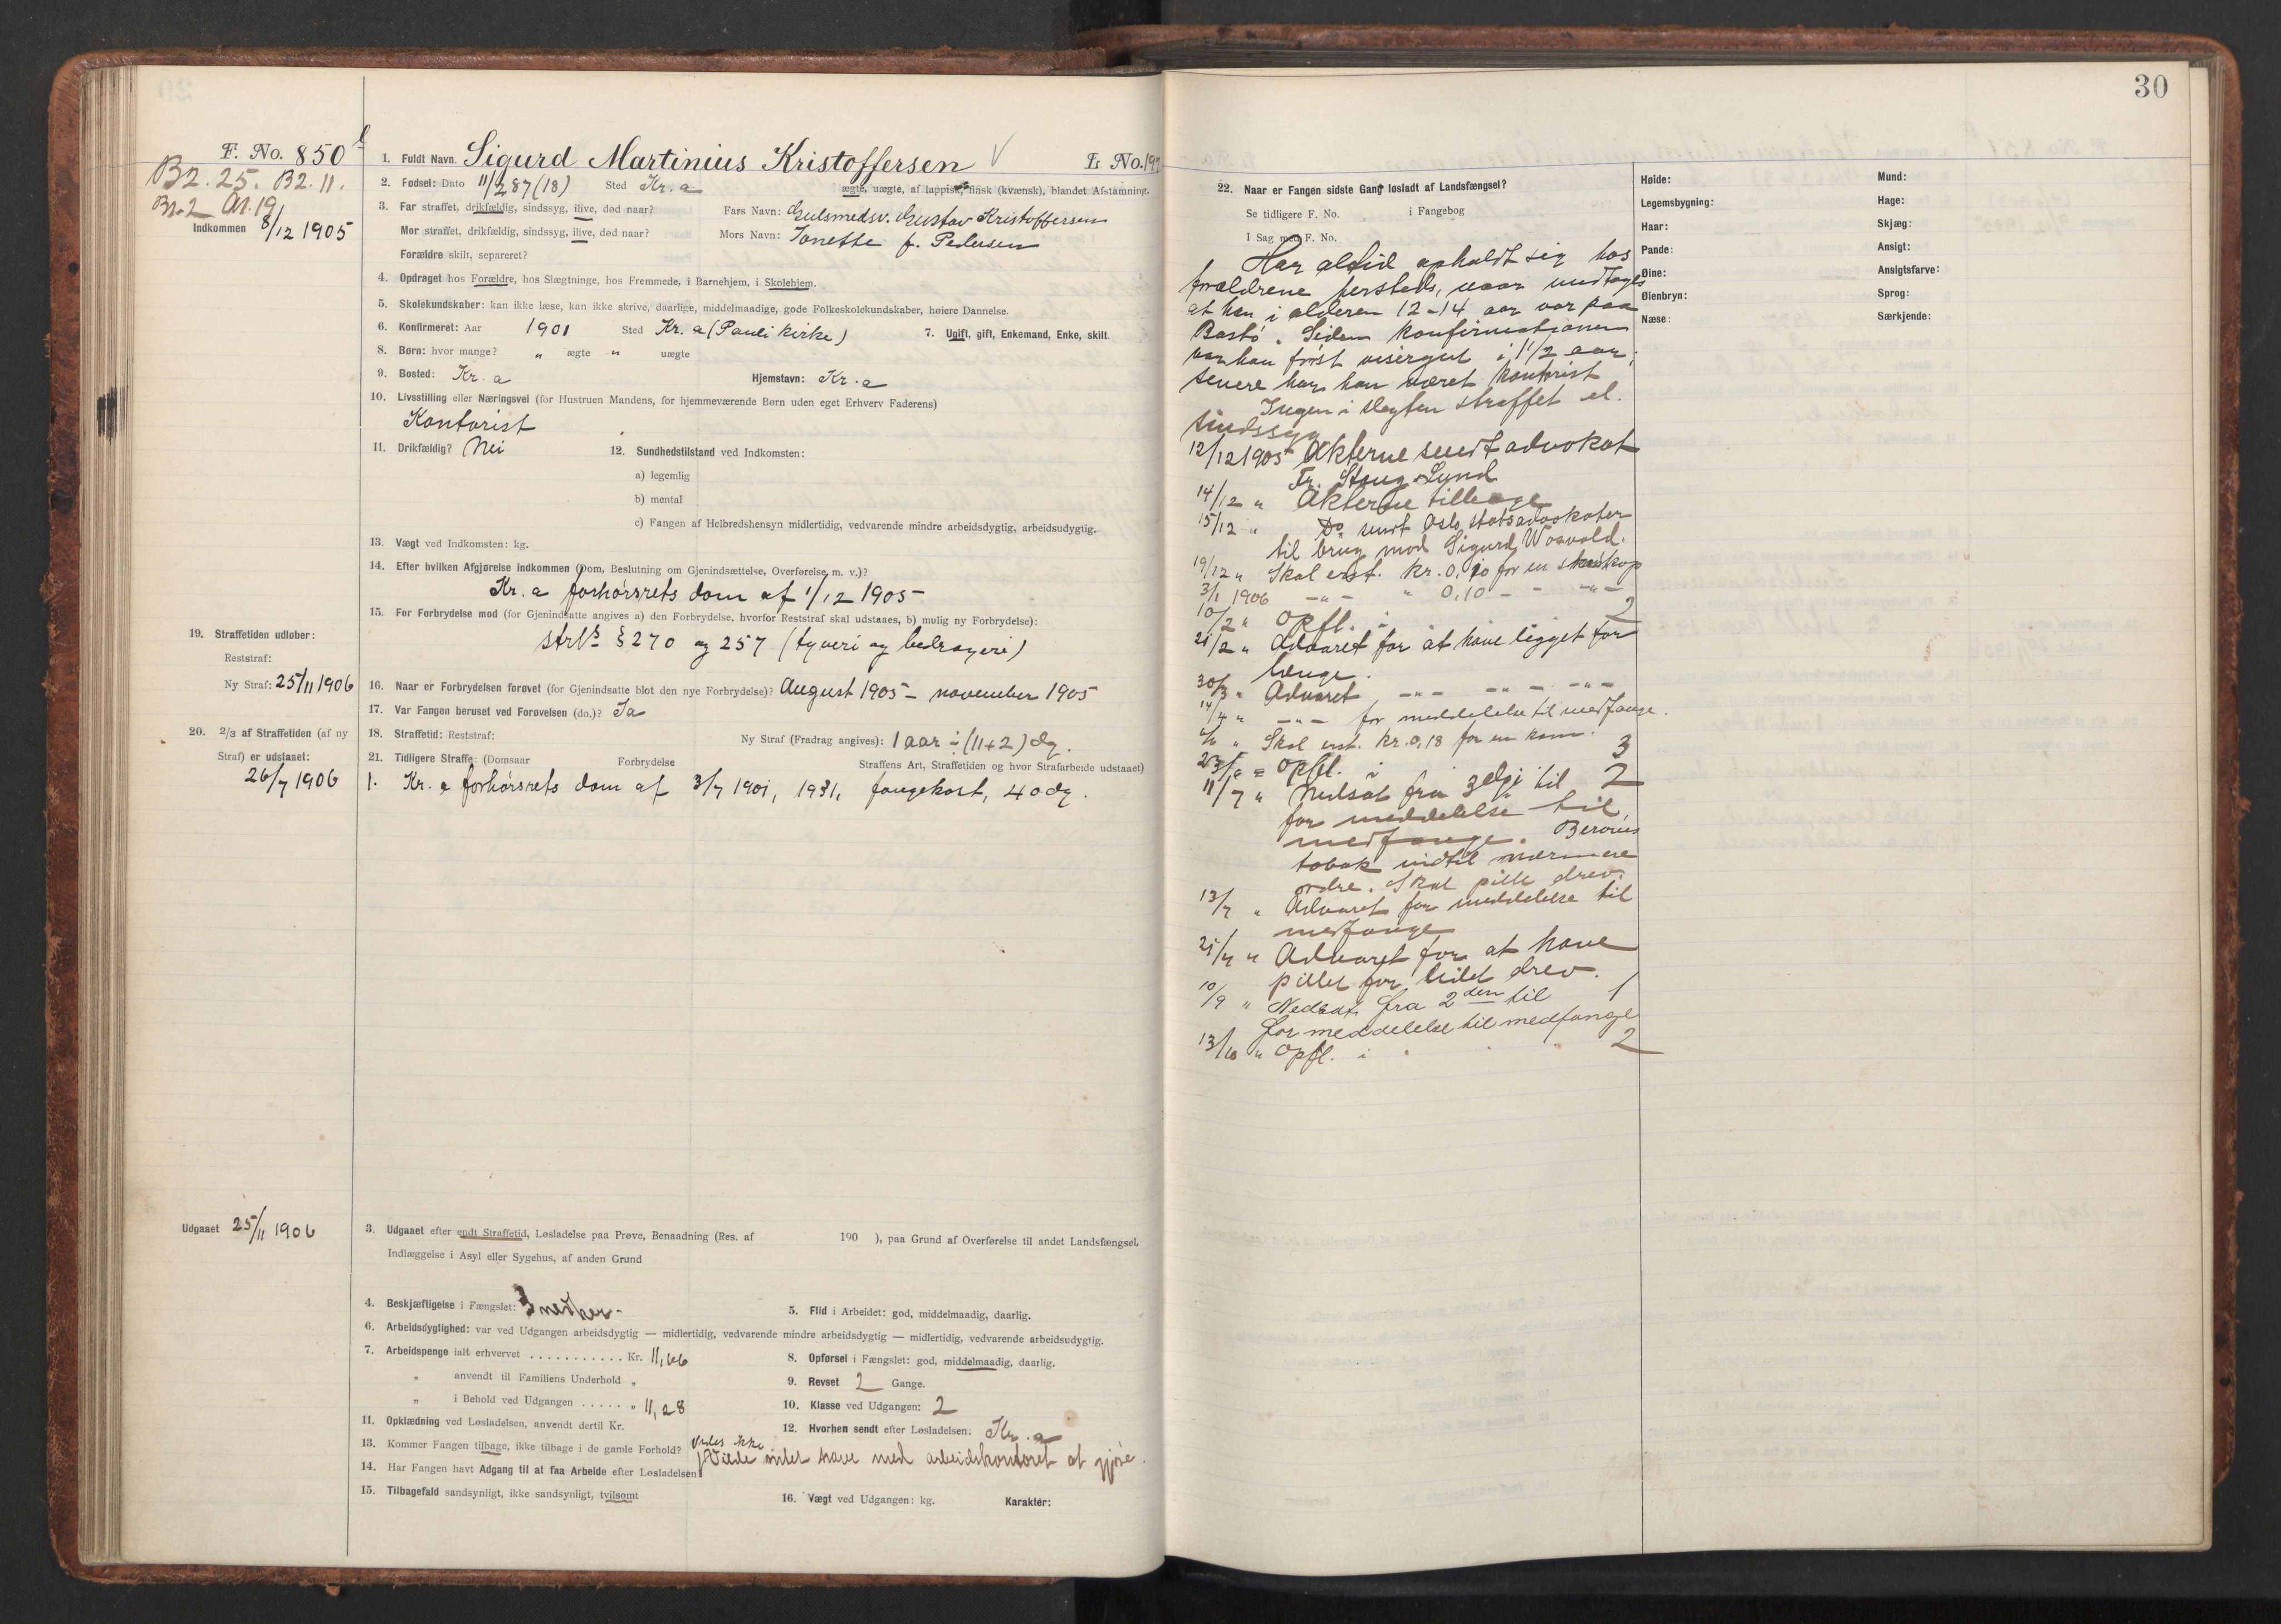 30
F. No. 850
B2. 25. B2. 11.
Br. 2 Ar. 19
Indkommen 8/12 1905
1. Fuldt Navn. Sigurd Martinius Kristoffersen L. No. 197
2. Fødsel: Dato 11/2 87 (18) Sted Kr.a ægte, uægte, af lappisk, finsk (kvænsk), blandet Afstamning.
3. Far straffet, drikfældig, sindssyg, ilive, død naar? Fars Navn: Gulsmedsv. Gustav Kristoffersen
Mor straffet, drikfældig, sindssyg, ilive, død naar? Mors Navn: Janette f. Pedersen
Forældre skilt, separeret?
4. Opdraget hos Forældre, hos Slægtninge, hos Fremmede, i Barnehjem, i Skolehjem.
5. Skolekundskaber: kan ikke læse, kan ikke skrive, daarlige, middelmaadige, gode Folkeskolekundskaber, høiere Dannelse.
6. Konfirmeret: Aar 1901 Sted Kr.a (Pauli kirke) 7. Ugift, gift, Enkemand, Enke, skilt.
8. Børn: hvor mange? " ægte " uægte
9. Bosted: Kr.a Hjemstavn: Kr.a
10. Livsstilling eller Næringsvei (for Hustruen Mandens, for hjemmeværende Børn uden eget Erhverv Faderens)
Kontorist
11. Drikfældig? Nei 12. Sundhedstilstand ved Indkomsten:
a) legemlig
b) mental
c) Fangen af Helbredshensyn midlertidig, vedvarende mindre arbeidsdygtig, arbeidsudygtig.
13. Vægt ved Indkomsten: kg.
14. Efter hvilken Afgjørelse indkommen (Dom, Beslutning om Gjenindsættelse, Overførelse m. v.)?
Kr.a forhørsrets dom af 1/12 1905
15. For Forbrydelse mod (for Gjenindsatte angives a) den Forbrydelse, hvorfor Reststraf skal udstaaes, b) mulig ny Forbrydelse):
strl's § 270 og 257 (tyveri og bedrageri)
19. Straffetiden udløber:
Reststraf:
Ny Straf: 25/11 1906
16. Naar er Forbrydelsen forøvet (for Gjenindsatte blot den nye Forbrydelse)? August 1905 - november 1905
17. Var Fangen beruset ved Forøvelsen (do.)? Ja
20. 2/3 af Straffetiden (af ny Straf) er udstaaet:
26/7 1906
18. Straffetid: Reststraf: Ny Straf (Fradrag angives): 1 aar ÷ (11+2) dg.
21. Tidligere Straffe: (Domsaar Forbrydelse Straffens Art, Straffetiden og hvor Strafarbeide udstaaet)
1. Kr.a forhørsrets dom af 3/7 1901, 1931, fangekost, 40 dg.
Udgaaet 25/11 1906
3. Udgaaet efter endt Straffetid, Løsladelse paa Prøve, Benaadning (Res. af 190 ), paa Grund af Overførelse til andet Landsfængsel,
Indlæggelse i Asyl eller Sygehus, af anden Grund
4. Beskjæftigelse i Fængslet: Snedker 5. Flid i Arbeidet: god, middelmaadig, daarlig.
6. Arbeidsdygtighed: var ved Udgangen arbeidsdygtig — midlertidig, vedvarende mindre arbeidsdygtig — midlertidig, vedvarende arbeidsudygtig.
7. Arbeidspenge ialt erhvervet . . . . . . . . . . . Kr. 11,66 8. Opførsel i Fængslet: god, middelmaadig, daarlig.
" anvendt til Familiens Underhold " 9. Revset 2 Gange.
" i Behold ved Udgangen . . . . . " 11,28 10. Klasse ved Udgangen: 2
11. Opklædning ved Løsladelsen, anvendt dertil Kr. 12. Hvorhen sendt efter Løsladelsen: Kr.a
13. Kommer Fangen tilbage, ikke tilbage i de gamle Forhold? Vides ikke
14. Har Fangen havt Adgang til at faa Arbeide efter Løsladelsen? Vilde intet have med arbeidskontoret at gjøre.
15. Tilbagefald sandsynligt, ikke sandsynligt, tvilsomt 16. Vægt ved Udgangen: kg. Karaktér:
22. Naar er Fangen sidste Gang løsladt af Landsfængsel?
Se tidligere F. No. i Fangebog
I Sag med F. No.
Har altid opholdt sig hos
forældrene hersteds, naar undtages
at han i alderen 12-14 aar var paa
Bastø. Siden konfirmationen
var han først visergut i 1 1/2 aar,
senere har han været kontorist
Ingen i slegten straffet el.
sindssyg
12/12 1905 Akterne sendt advokat
Fr. Stang Lund
14/12 " Akterne tilbage
15/12 " Do sendt Oslo statsadvokater
til brug mod Sigurd Wosvold.
19/12 " Skal erst. kr. 0,10 for en
3/1 1906 -"- " 0,10 - - -"-
10/2 " Opfl. i 2
21/2 " Advaret for at have ligget for
længe.
30/3 " Advaret -"- -"- -"-
14/4 " -"- for meddelelse til medfange.
" Skal erst. kr. 0,18 for en kam.
" Opfl. i 3
11/7 " Nedsat fra 3dje til 2
for meddelelse til
medfange. Berøves
tobak indtil nærmere
ordre. Skal pille drev.
13/7 " Advaret for meddelelse til
medfange
21/7 " Advaret for at have
pillet for lidet drev.
10/9 " Nedsat fra 2den til 1
for meddelelse til medfange
13/10 " Opfl. i 2
Høide:
Legemsbygning:
Haar:
Pande:
Øine:
Øienbryn:
Næse:
Mund:
Hage:
Skjæg:
Ansigt:
Ansigtsfarve:
Sprog:
Særkjende: